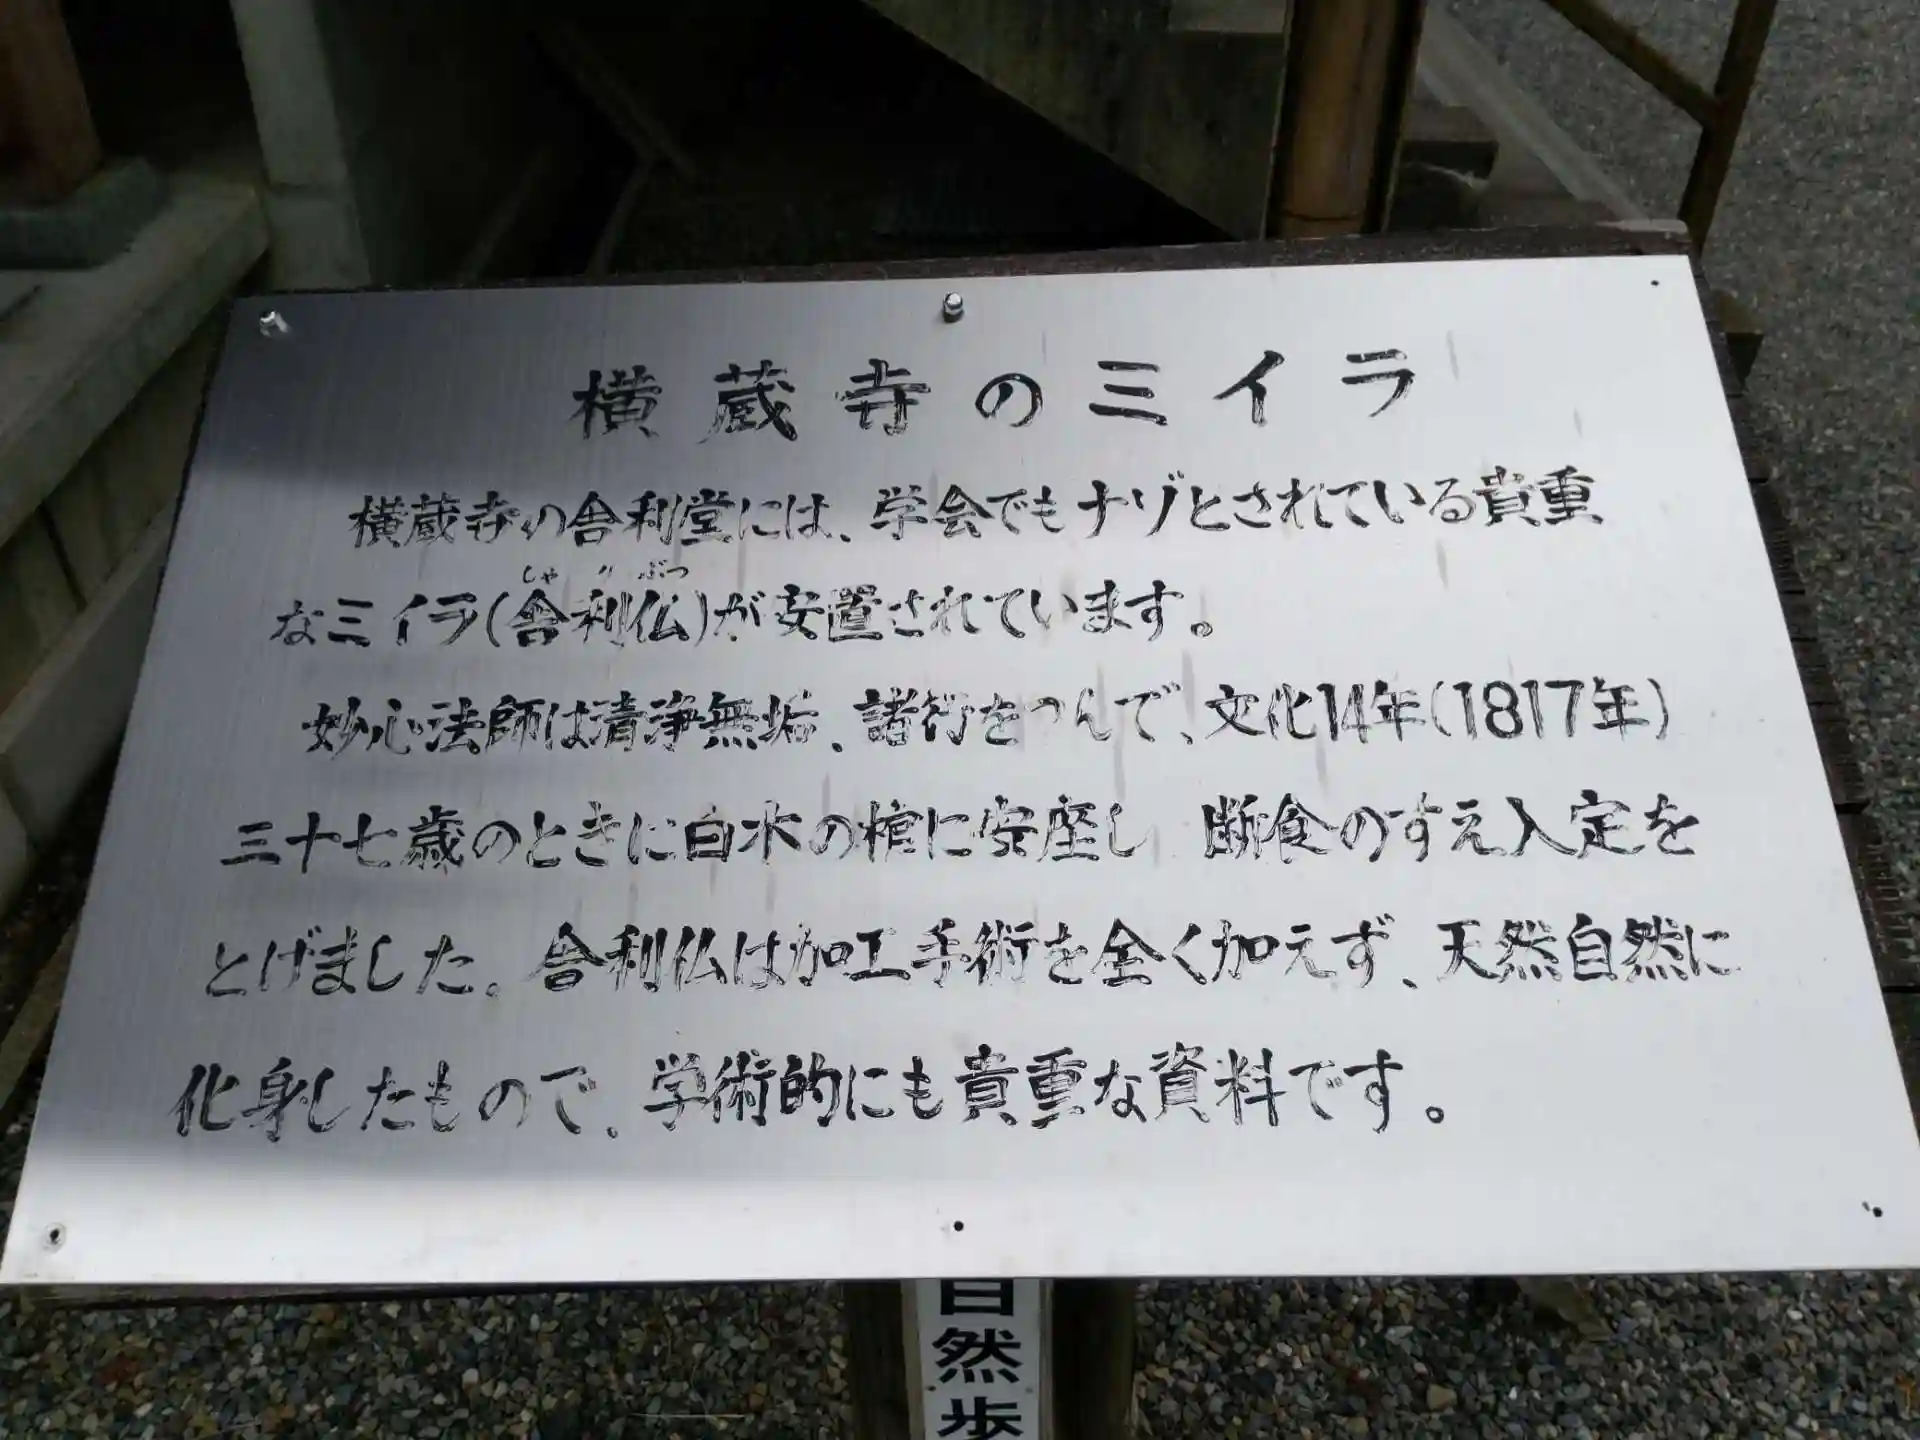 横蔵寺のミイラ
横蔵寺の舎利堂には、学会でもナゾとされている貴重
しゃりぶつ
なミイラ(舎利仏)が安置されています。
妙心法師は清浄無垢、諸行をつんで、文化14年(1817年)
三十七歳のときに白木の棺に安座し 断食のすえ入定を
とげました。舎利仏は加工手術を全く加えず、天然自然に
化身したもので、学術的にも貴重な資料です。
自然歩